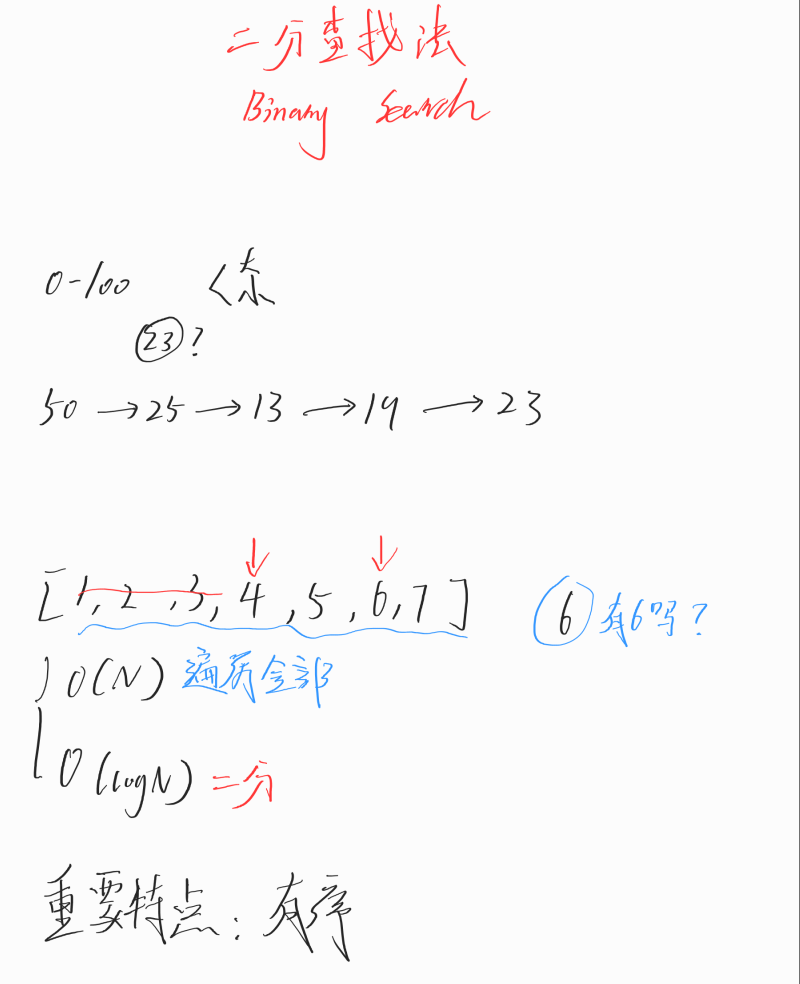 二分查找法
Binary Search
0-100
23?
50 → 25 → 13 → 19 → 23
[1, 2, 3, 4, 5, 6, 7] 6 有6吗?
O(N) 遍历全部
O(logN) 二分
重要特点: 有序